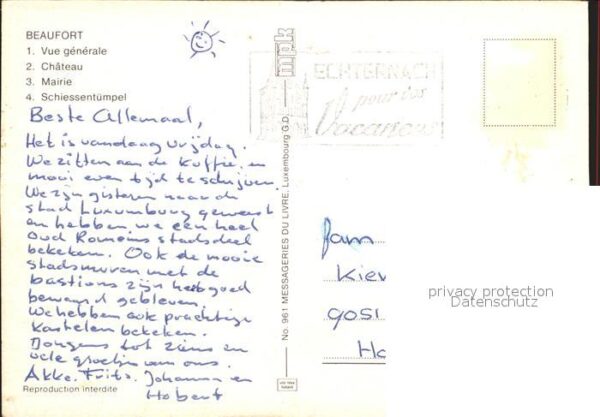 BEAUFORT
1. Vue générale
2. Château
3. Mairie
4. Schiessentümpel
Beste Allemaal,
Het is vandaag vrijdag.
We zitten aan de koffie en
mooi even tijd te schrijven.
We zijn gisteren naar de
stad Luxumburg geweest
en hebben we een heel
oud Romeins stadsdeel
bekeken. Ook de mooie
stadsmuren met de
bastions zijn heb goed
bewaard gebleven.
We hebben ook prachtige
kastelen bekeken.
Jongens tot ziens en
vele groetjes van ons.
Akke. Frits. Johannes en
Hobert
Reproduction interdite
No. 961 MESSAGERIES DU LIVRE, Luxembourg G.D.
mpk
ECHTERNACH
pour vos
Vacances
fam
Kiev
9051
Ho
privacy protection
Datenschutz